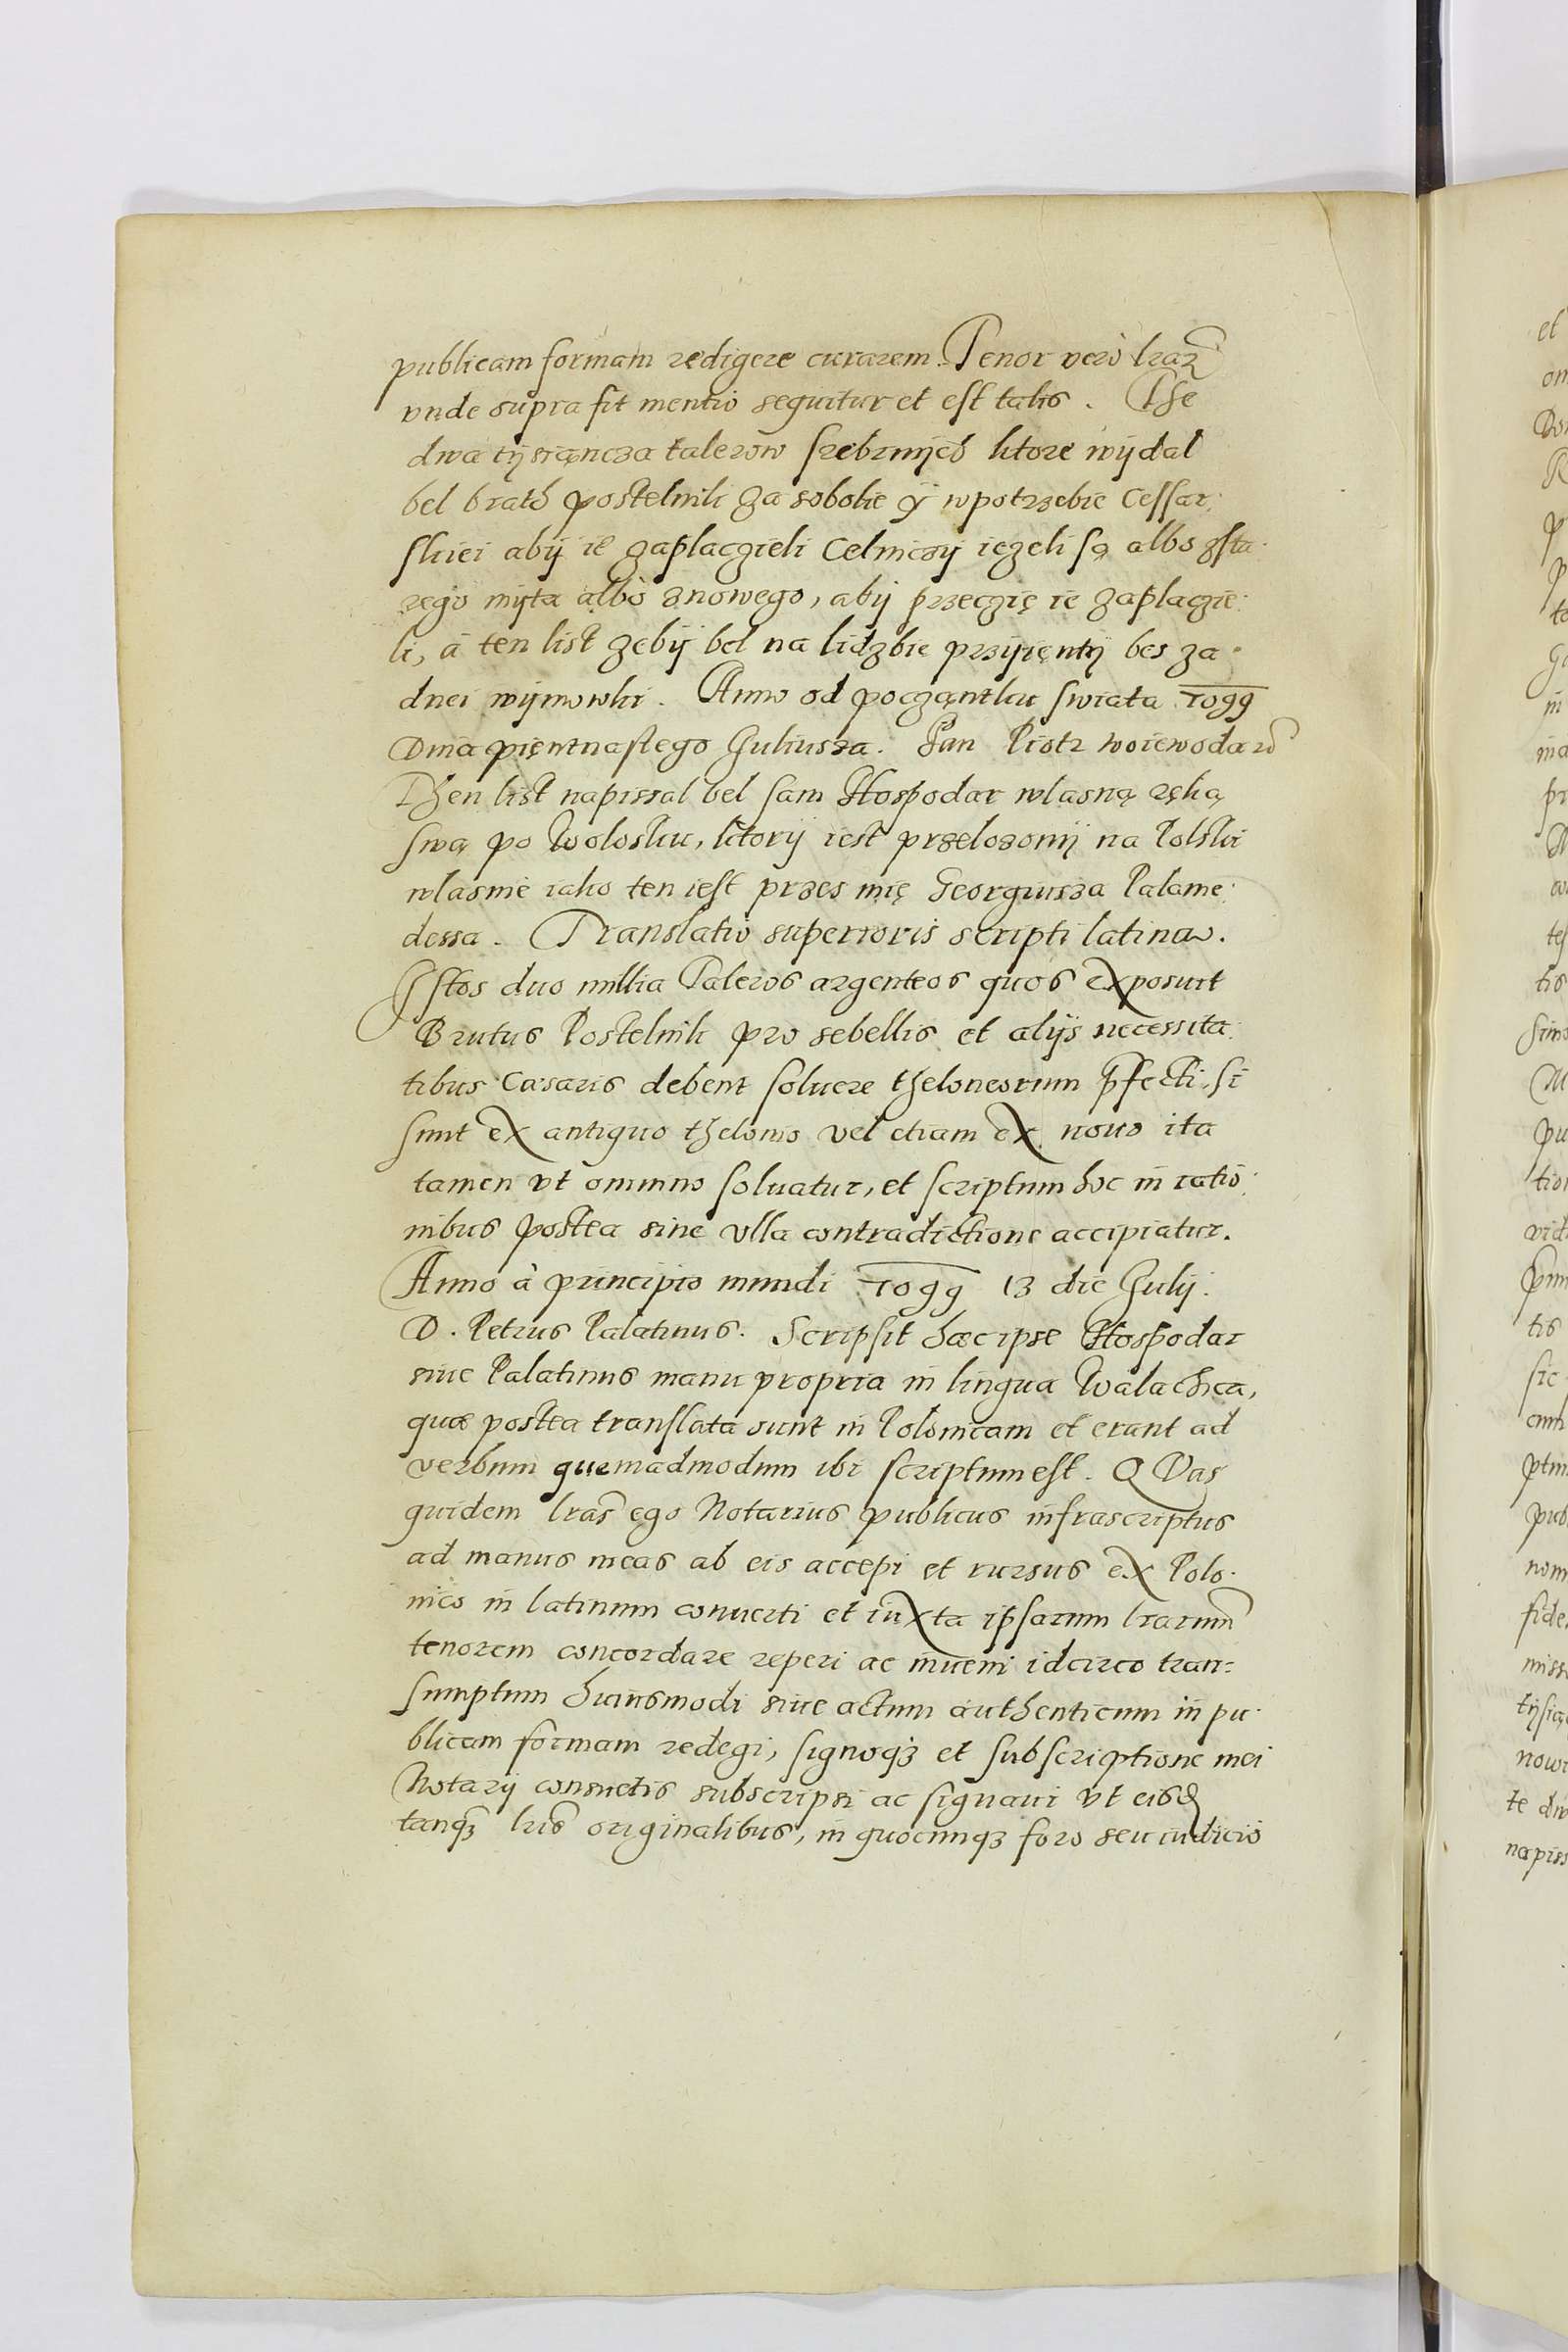 publicam formam redigere curarem. Tenor verò lrarꝫ
vnde supra fit mentio sequitur et est talis. The
dwa tijsiąncza talerow srebrnijch ktore wijdal
bel brath postelnik za sobolie ÿ wpotrzebie Cessar:
skiei abij ie zaplaczieli Celniczij iezeli są albo zsta:
rego mijta albo znowego, abij przeczię ie zaplaczie:
li, à ten list zebij bel na lidzbie przijięntij bes za:
dnei wijmowki. Anno od począntku swiata 7099
Dnia piętnastego Juliusza. Jan Piotr woiewoda
Then list napissal bel sam Hospodar wlasną ręką
swą po Woloskw, ktorij iest przelozonij na Polski
wlasnie iako ten iest przes mię Georgiusza Palame:
dessa. Translatio superioris scripti latina.
Istos duo millia Taleros argenteos quos exposuit
Brutus Postelnik pro sebellis et alijs necessita:
tibus Cæsaris debent soluere theloneorum pfecti, si
sunt ex antiquo thelonio vel etiam ex nouo ita
tamen vt omnino soluatur, et scriptum hoc in ratio:
nibus postea sine vlla contradictione accipiatur.
Anno à principio mundi 7099 13 die Julij.
D. Petrus Palatinus. Scripsit hæc ipse Hospodar
siue Palatinus manu propria in lingua Walachica,
quæ postea translata sunt in Polonicam et erant ad
verbum quemadmodum ibi scriptum est. QVas
quidem lras ego Notarius publicus infrascriptus
ad manus meas ab eis accepi et rursus ex Polo:
nico in latinum conuerti et iuxta ipsarum lrarum
tenorem concordare reperi ac inueni idcirco tran=
sumptum huiusmodi siue actum authenticum in pu:
blicam formam redegi, signoqꝫ et subscriptione mei
Notarij consuetis subscripsi ac signaui vt eisd
tanqꝫ lris originalibus, in quocunqꝫ foro seu iudicio